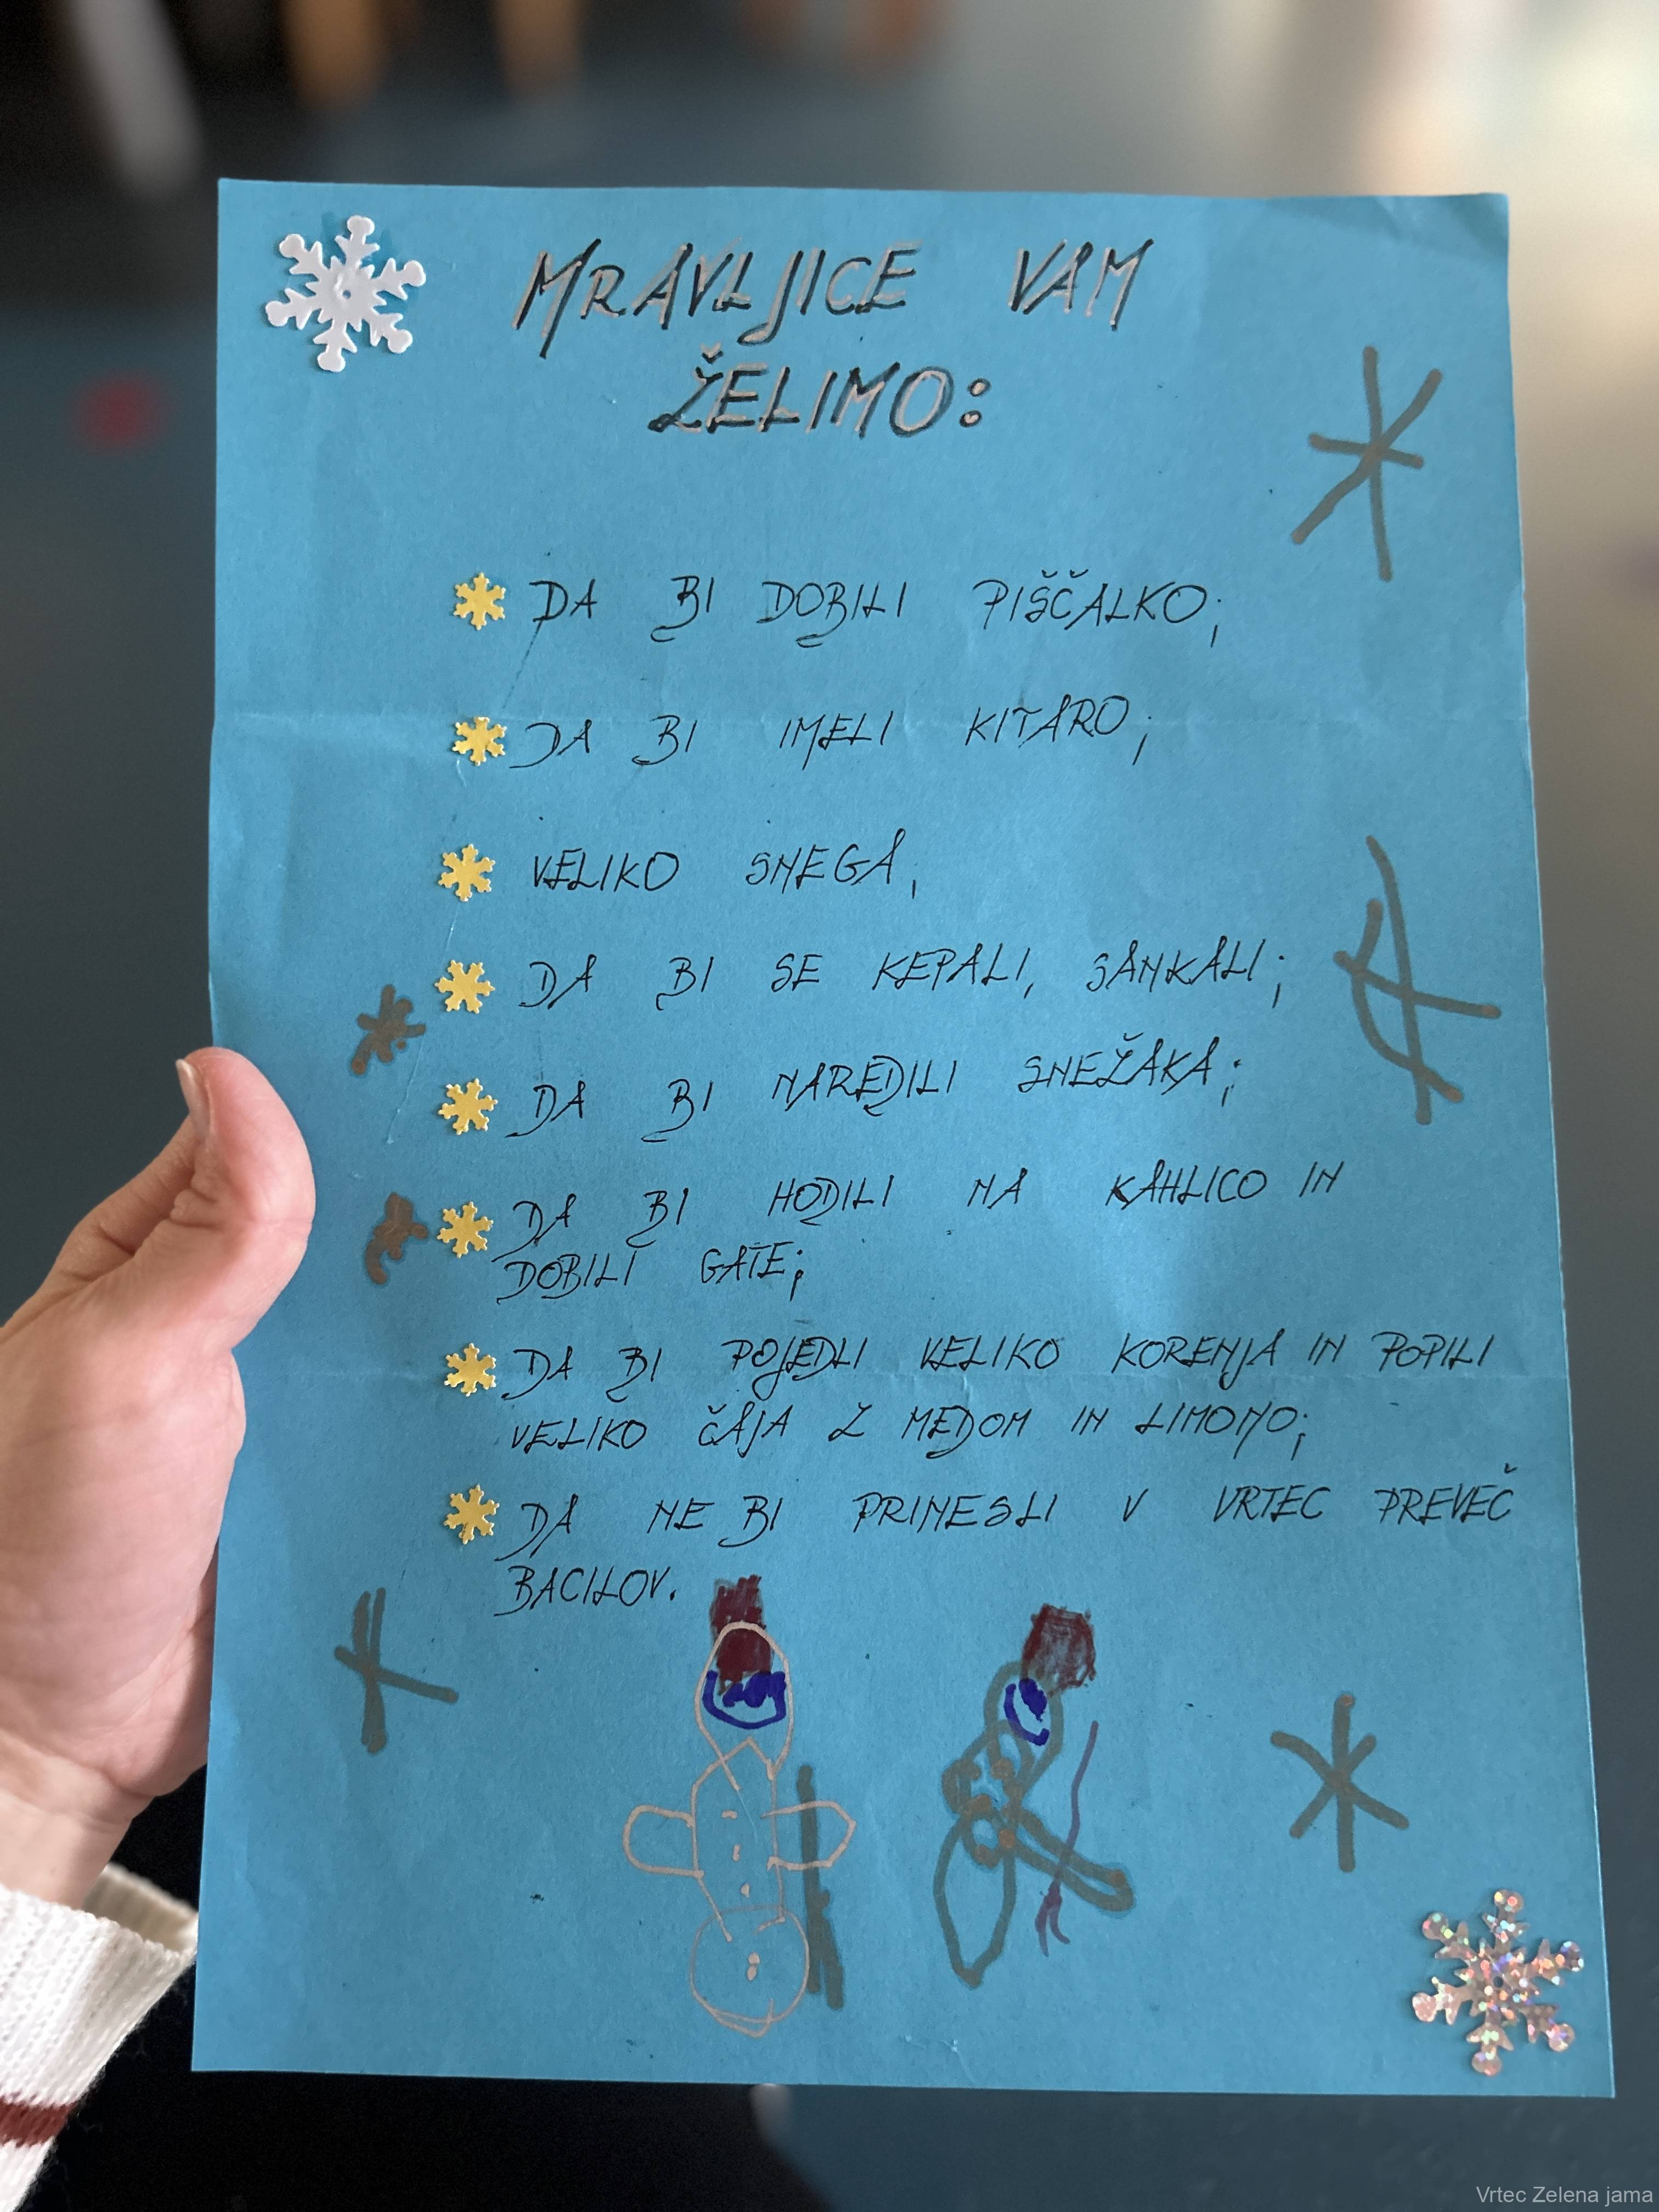 MRAVLJICE VAM
ŽELIMO:
DA BI DOBILI PIŠČALKO;
DA BI IMELI KITARO;
VELIKO SNEGA,
DA BI SE KEPALI, SANKALI;
DA BI NAREDILI SNEŽAKA;
DA BI HODILI NA KAHLICO IN
DOBILI GATE;
DA BI POJEDLI VELIKO KORENJA IN POPILI
VELIKO ČAJA Z MEDOM IN LIMONO;
DA NE BI PRINESLI V VRTEC PREVEČ
BACILOV.
Vrtec Zelena jama